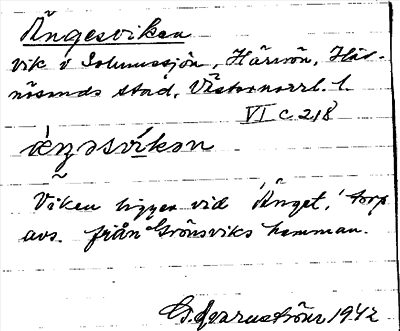 Ängesviken
vik v Solumssjön, Härnön, Här-
nösands stad, Västernorrl. l.
VI C 218
Viken ligger vid 'Änget,' torp
avs. från Grönsviks hemman.
1942